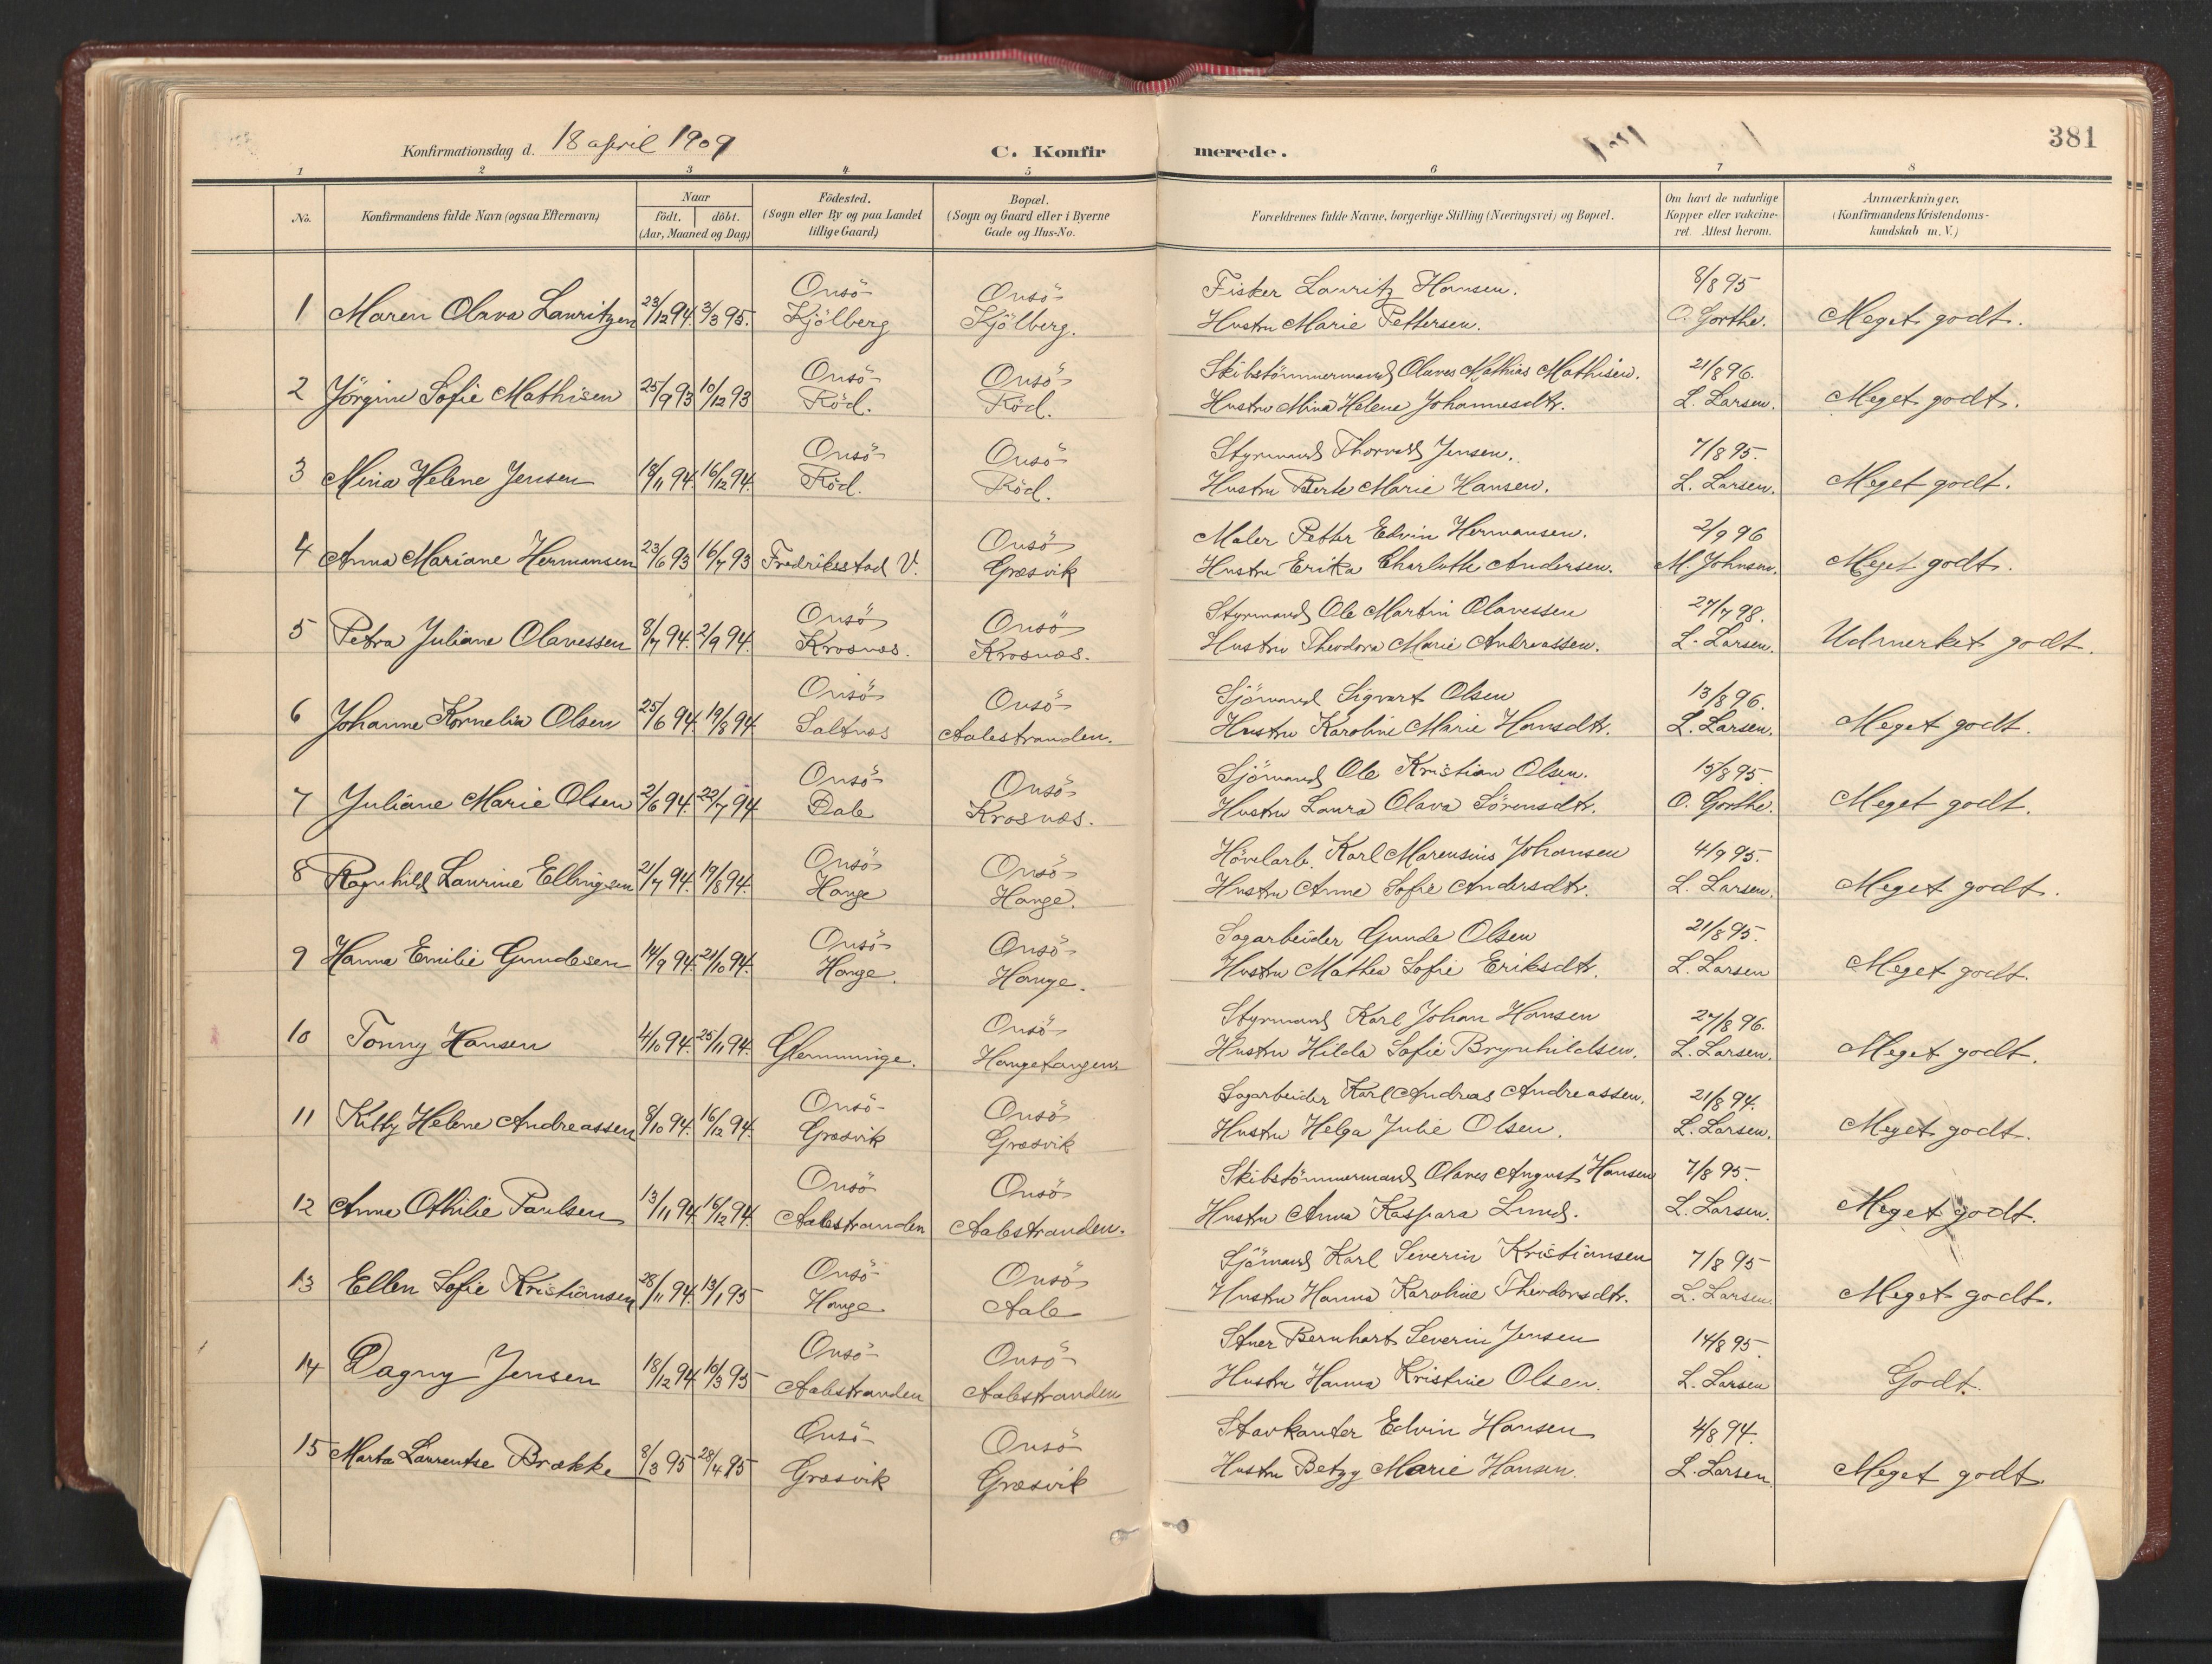 Konfirmationsdag d. 18 april 1909
C. Konfirmerede.
381
1 2 3 4 5 6 7 8
No.
Konfirmandens fulde Navn (ogsaa Efternavn)
Naar
født. døbt.
(Aar, Maaned og Dag)
Födested.
(Sogn eller By og paa Landet
tillige Gaard)
Bopæl.
(Sogn og Gaard eller i Byerne
Gade og Hus-No.
Forældrenes fulde Navne, borgerlige Stilling (Næringsvei) og Bopæl.
Om havt de naturlige
Kopper eller vakcine-
ret. Attest herom.
Anmærkninger,
(Konfirmandens Kristendoms-
kundskab m. V.)
Onsö Onsö Fisker Lauritz Hansen. 8/8 95
1 Maren Olava Lauritzen 23/12 94. 3/3 95. Kjölberg Kjölberg. Hustru Marie Pettersen. O. Gorthe. Meget godt.
Onsö Onsö Skibstömmermand Olaves Mathias Mathisen. 21/8 96.
2 Jörgine Sofie Mathisen 25/9 93 10/12 93 Röd. Röd. Hustru Mina Helene Johannesdtr. L. Larsen. Meget godt.
Onsö Onsö Styrmand Thorvald Jensen. 7/8 95.
3 Mina Helene Jensen 18/11 94. 16/12 94. Röd. Röd. Hustru Berte Marie Hansen. L. Larsen. Meget godt.
Onsö Maler Petter Edvin Hermansen. 2/9 96
4 Anna Mariane Hermansen 23/6 93 16/7 93 Fredriksstad V. Græsvik Hustru Erika Charlotte Andersen. M. Johnsen. Meget godt.
Onsö Onsö Styrmand Ole Martin Olavessen 27/7 98.
5 Petra Juliane Olavessen 8/7 94. 2/9 94. Krosnæs. Krosnæs. Hustru Theodora Marie Andreassen. L. Larsen. Udmerket godt.
Onsö Onsö Sjömand Sigvart Olsen 13/8 96.
6 Johanne Kornelia Olsen 25/6 94. 19/8 94. Saltnæs Aalestranden. Hustru Karoline Marie Hansdtr. L. Larsen. Meget godt.
Onsö Onsö Sjömand Ole Kristian Olsen. 15/8 95.
7 Juliane Marie Olsen 2/6 94. 22/7 94 Dale Krosnæs. Hustru Laura Olava Sörensdtr. O. Gorthe. Meget godt.
Onsö Onsö Hövelarb. Karl Marensius Johansen 4/9 95.
8 Ragnhild Laurine Ellingsen 21/7 94. 19/8 94. Hauge Hauge. Hustru Anne Sofie Andersdtr. L. Larsen. Meget godt.
Onsö Onsö Sagarbeider Gunde Olsen 21/8 95.
9 Hanna Emilie Gundesen 14/9 94. 21/10 94. Hauge. Hauge. Hustru Mathea Sofie Eriksdtr. L. Larsen Meget godt.
Onsö Styrmand Karl Johan Hansen 27/8 96.
10 Tonny Hansen 4/10 94. 25/11 94. Glemminge. Haugetangen Hustru Hilda Sofie Brynhildsen. L. Larsen. Meget godt.
Onsö Onsö Sagarbeider Karl Andreas Andreassen. 21/8 94.
11 Kitty Helene Andreassen 8/10 94. 16/12 94. Græsvik Græsvik Hustru Helga Julie Olsen. L. Larsen. Meget godt.
Onsö Onsö Skibstömmermand Olaves August Hansen 7/8 95.
12 Anne Othilie Paulsen 13/11 94 16/12 94. Aalestranden Aalestranden. Hustru Anna Kaspara Lund. L. Larsen. Meget godt.
Onsö Onsö Sjömand Karl Severin Kristiansen 7/8 95
13 Ellen Sofie Kristiansen 28/11 94. 13/1 95 Hauge Aale Hustru Hanna Karoline Theodorsdtr. L. Larsen. Meget godt.
Onsö Onsö Stuer Bernhart Severin Jensen 14/8 95.
14 Dagny Jensen 18/12 94 10/3 95 Aalestranden Aalestranden Hustru Hanna Kristine Olsen. L. Larsen Godt.
Onsö Onsö Stavkanter Edvin Hansen 4/8 94.
15 Marta Laurentse Brække 8/3 95 28/4 95 Græsvik Græsvik Hustru Betzy Marie Hansen. L. Larsen Meget godt.